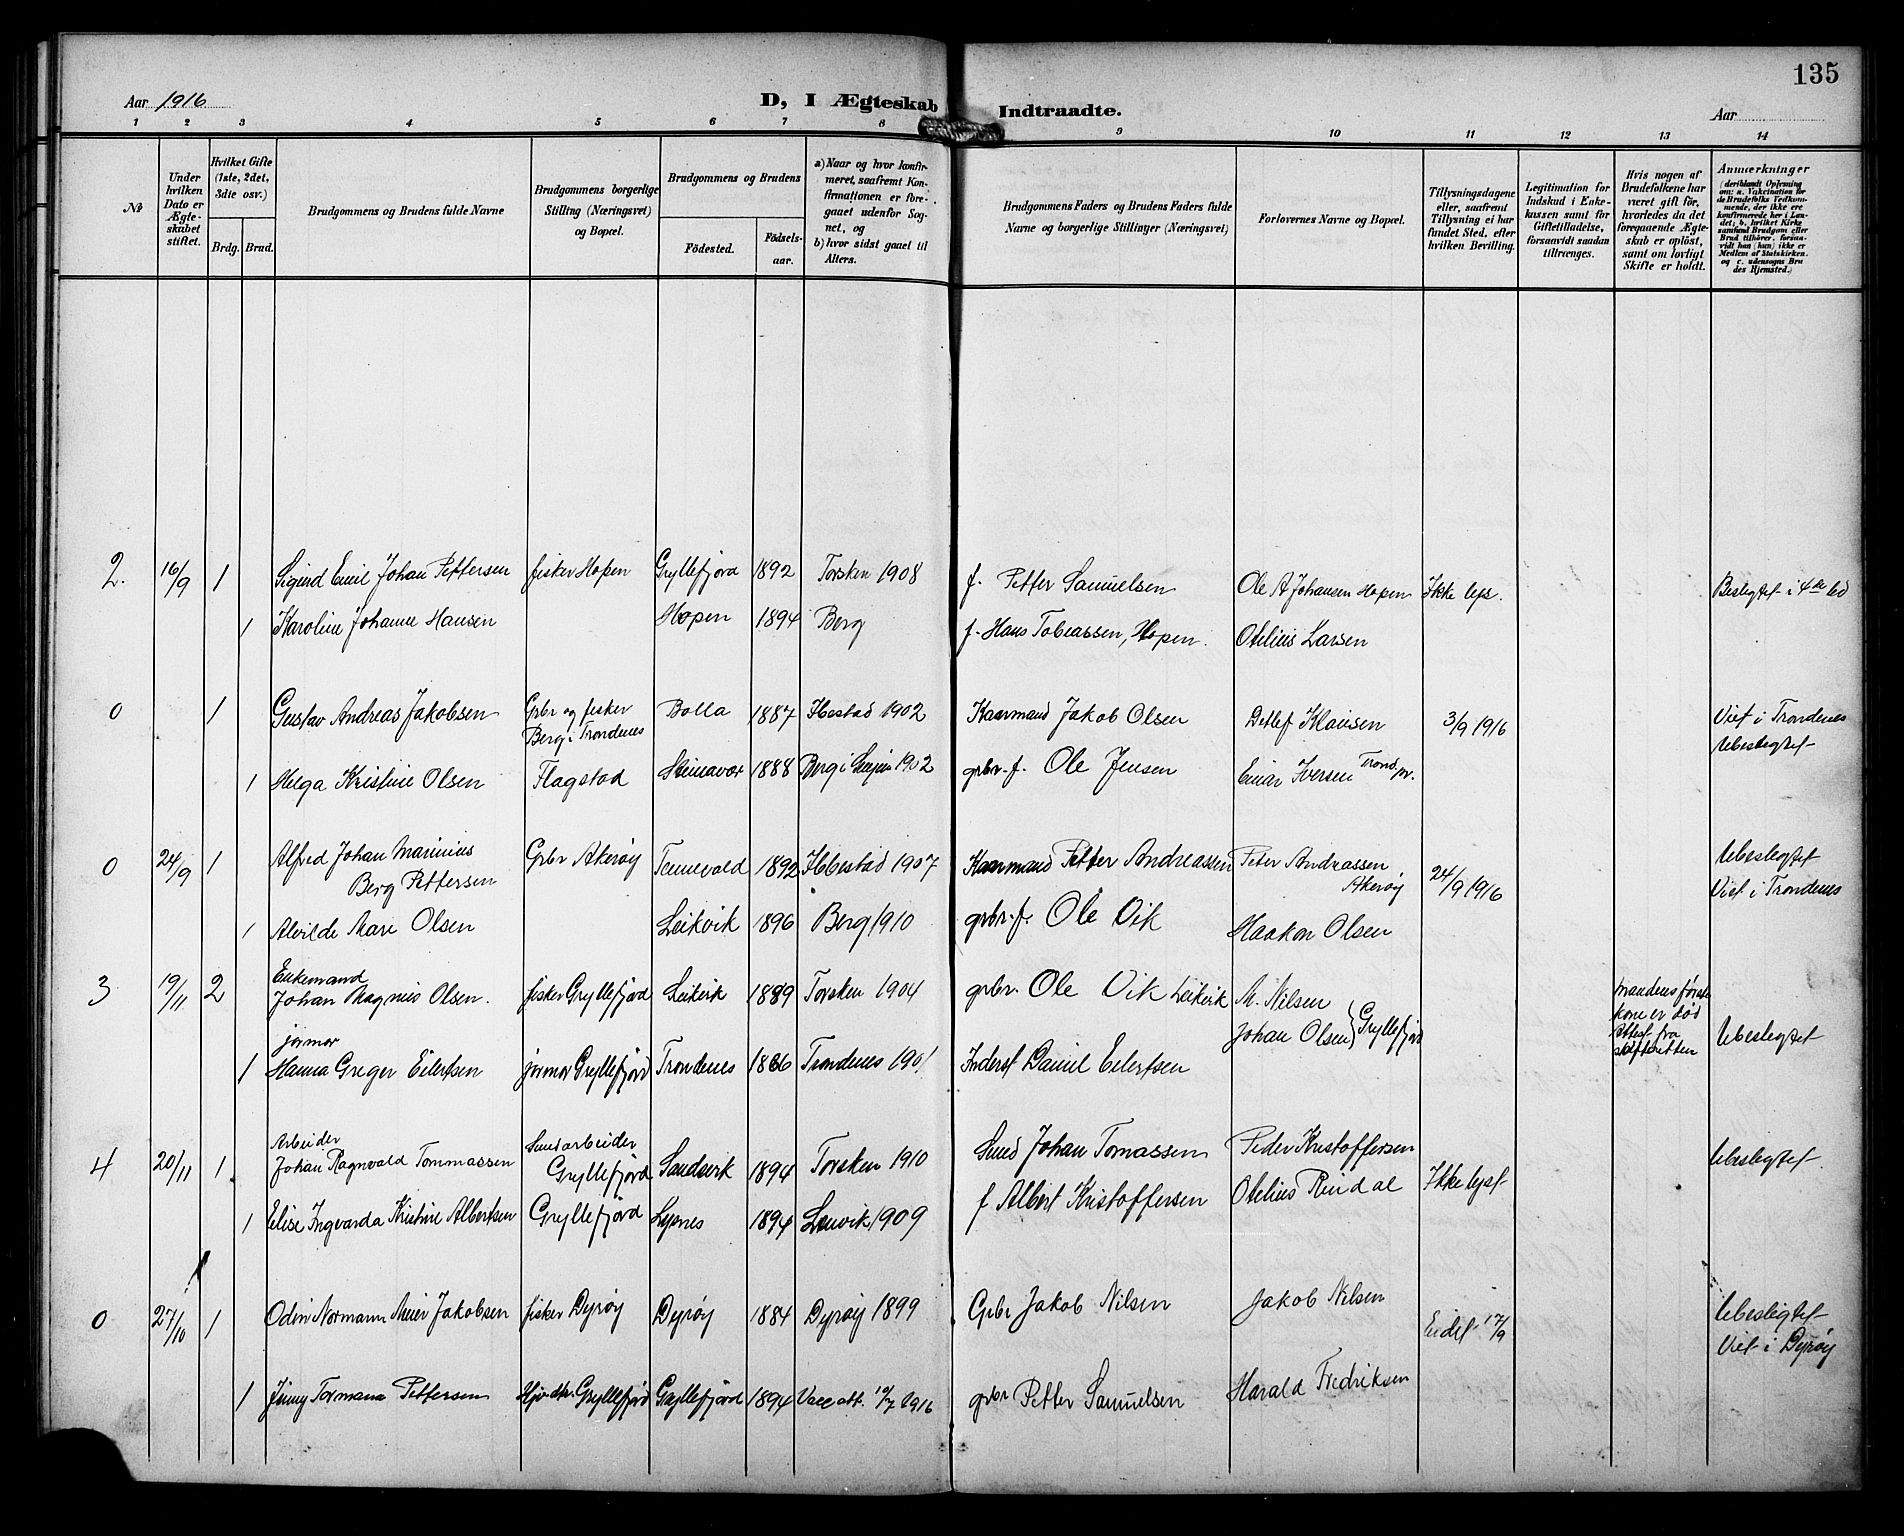 135
Aar 1916
D, I Ægteskab Indtraadte.
Aar
1 2 3 4 5 6 7 8 9 10 11 12 13 14
№
Under hvilken Dato er Ægteskabet stiftet.
Hvilket Gifte (1ste, 2det, 3die osv.)
Brdg. Brud.
Brudgommens og Brudens fulde Navne
Brudgommens borgerlige Stilling (Næringsvei) og Bopæl.
Brudgommens og Brudens
Fødested.
Fødselsaar.
a) Naar og hvor konfirmeret, saafremt Konfirmationen er foregaaet udenfor Sognet, og
b) hvor sidst gaaet til Alters.
Brudgommens Faders og Brudens Faders fulde Navne og borgerlige Stillinger (Næringsvei)
Forlovernes Navne og Bopæl.
Tillysningsdagene eller, saafremt Tillysning ei har fundet Sted, efter hvilken Bevilling.
Legitimation for Indskud i Enkekassen samt for Giftetilladelse, forsaavidt saadan tiltrænges.
Hvis nogen af Brudefolkene har været gift før, hvorledes da det foregaaende Ægteskab er opløst, samt om lovligt Skifte er holdt.
Anmerkninger
(deriblandt Oplysning om: a. Vakcination for de Brudefolks Vedkommende, der ikke ere konfirmerede her i Landet; b. hvilket Kirkesamfund Brudgom eller Brud tilhører, forsaavidt han (hun) ikke er Medlem af Statskirken, og c. udensogns Brudes Hjemsted.)
2. 16/9 1 Sigurd Emil Johan Pettersen fisker Hopen Gryllefjord 1892 Torsken 1908 f. Petter Samuelsen Ole A Johansen Hopen Ikke lys. Beslegtet i 4de led
1 Karoline Johanne Hansen Hopen 1894 Berg f. Hans Tobeassen, Hopen. Otelius Larsen
0 1 Gustav Andreas Jakobsen Grbr og fisker Berg i Trondenes Bolla 1887 Ibestad 1902 Kaarmand Jakob Olsen Detlef Klausen 3/9 1916 Viet i Trondenes
Ubeslegtet
1 Helga Kristine Olsen Flagstad 1888 Berg i Senjen 1902 grbr. f. Ole Jensen Einar Iversen
0 24/9 1 Alfred Johan Marinius Berg Pettersen Grbr Akerøy 1892 Ibestad 1907 Kaarmand Petter Andreassen Peter Andrassen Akerøy 24/9 1916 Ubeslegtet
Viet i Trondenes
1 Alvilde Mari Olsen Leikvik 1896 Berg 1910 grbr. f. Ole Vik Haakon Olsen
3 19/11 2 Enkemand
Johan Magnus Olsen. fisker Gryllefjord Leikvik 1889 Torsken 1904 grbr. Ole Vik Leikvik M. Nilsen
Johan Olsen } Gryllefjord mandens første kone er død attest fra skifteretten Ubeslegtet
jormor
1 Hanna Greger Eilertsen jormor Gryllefjord Trondenes 1886 Trondenes 1901 Inderst Daniel Eilertsen
4 20/11 1 Arbeider
Johan Ragnvald Tommassen Gryllefjord Sandvik 1894 Torsken 1910 Smed Johan Tomassen Peder Kristoffersen Ikke lyst Ubeslegtet.
1 Elise Ingvarda Kristine Albertsen Gryllefjord Lysnes 1894 Lenvik 1909 f Albert Kristoffersen Otelius Rindal
0 27/10 1 Odin Normann Meier Jakobsen fisker Dyrøy Dyrøy 1884 Dyrøy 1899 Grbr Jakob Nilsen Jakob Nilsen 17/9 Ubeslegtet
Viet i Dyrøy
1 Jinny Tormana Pettersen Gryllefjord Gryllefjord 1894 Vacc att. 10/7 1916 grbr Petter Samuelsen Harald Fredriksen